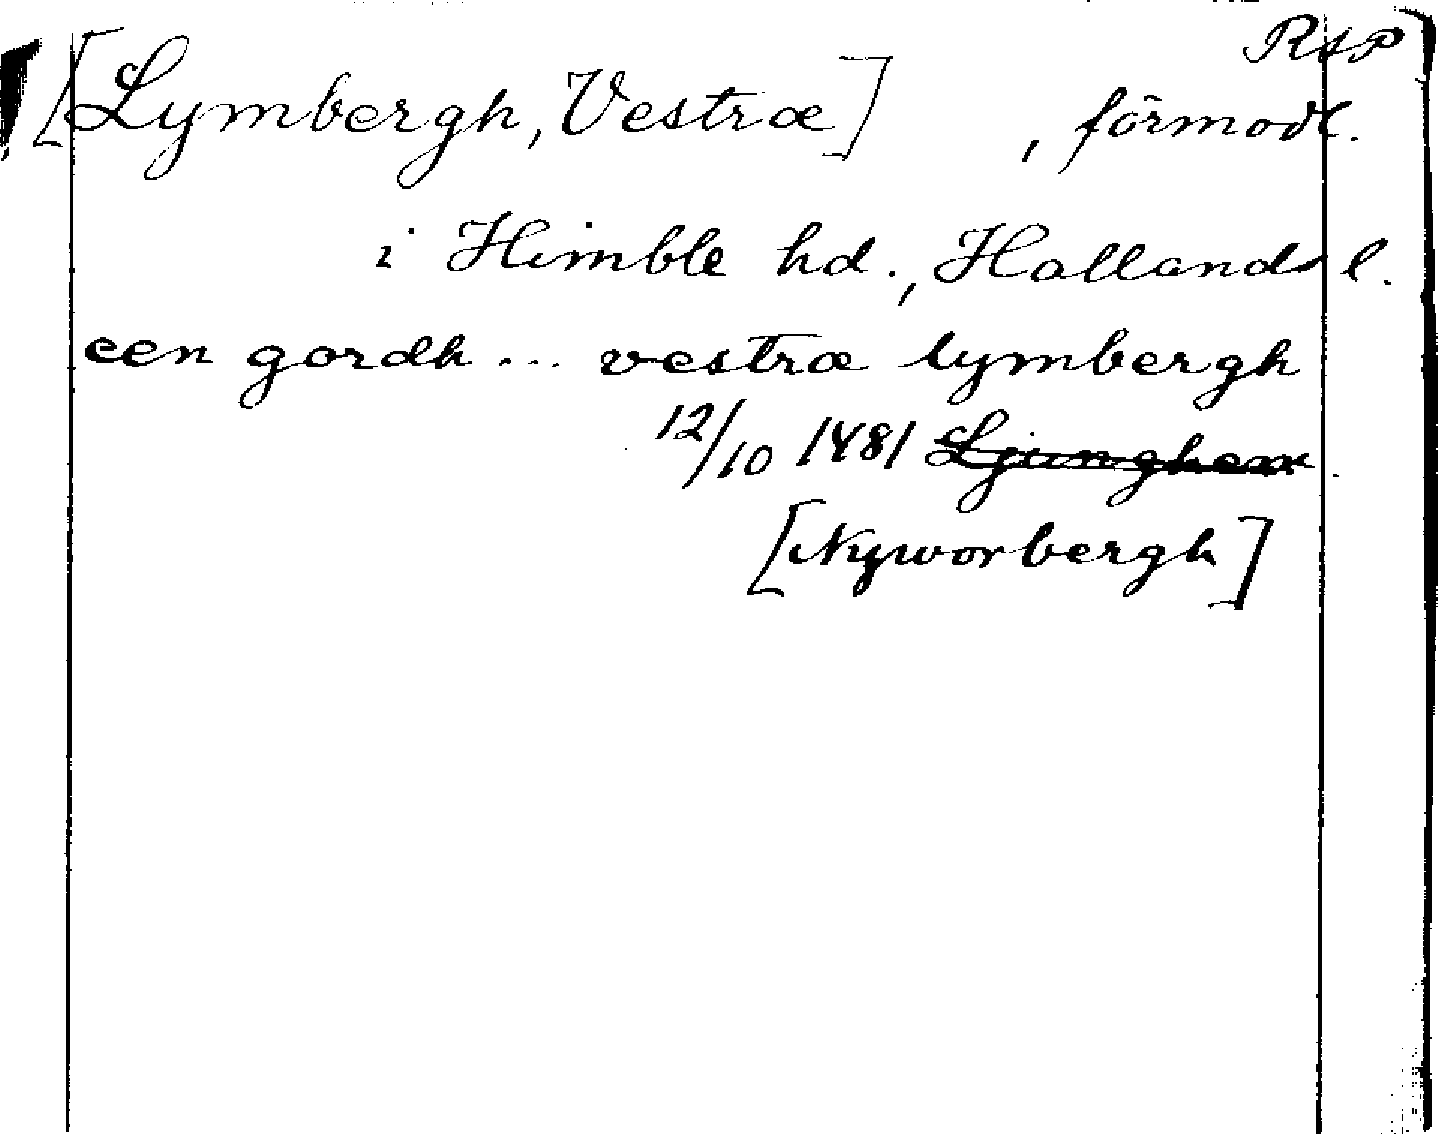 RAP
[Lymbergh, Vestræ] , förmodl.
i Himble hd., Hallands l.
een gordh ... vestræ lymbergh
12/10 1481 Ljunghem
[Nyworbergh]